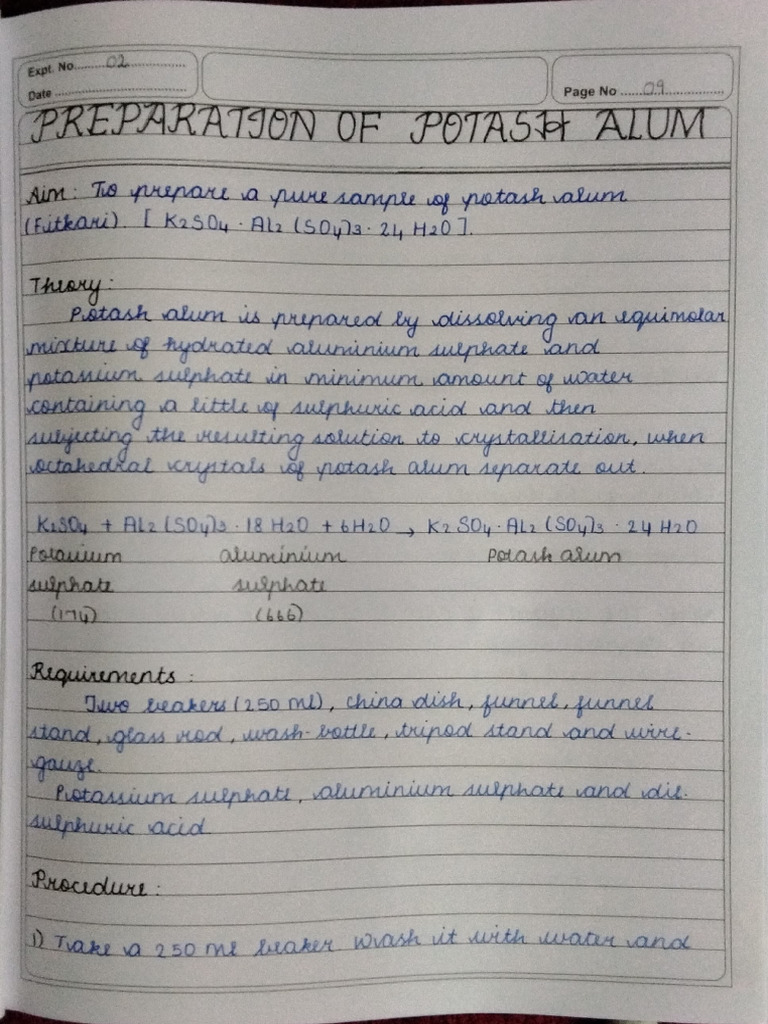 Expt. No. 02
Date
Page No 09
PREPARATION OF POTASH ALUM
Aim: To prepare a pure sample of potash alum
(Fitkari). [K2SO4 · Al2 (SO4)3 · 24 H2O].
Theory:
Potash alum is prepared by dissolving an equimolar
mixture of hydrated aluminium sulphate and
potassium sulphate in minimum amount of water
containing a little of sulphuric acid and then
subjecting the resulting solution to crystallisation, when
octahedral crystals of potash alum separate out.
K2SO4 + Al2 (SO4)3 · 18 H2O + 6H2O → K2 SO4 · Al2 (SO4)3 · 24 H2O
Potassium aluminium potash alum
sulphate sulphate
(174) (666)
Requirements:
Two beakers (250 ml), china dish, funnel, funnel
stand, glass rod, wash-bottle, tripod stand and wire-
gauze.
Potassium sulphate, aluminium sulphate and dil.
sulphuric acid
Procedure:
1) Take a 250 ml beaker Wash it with water and